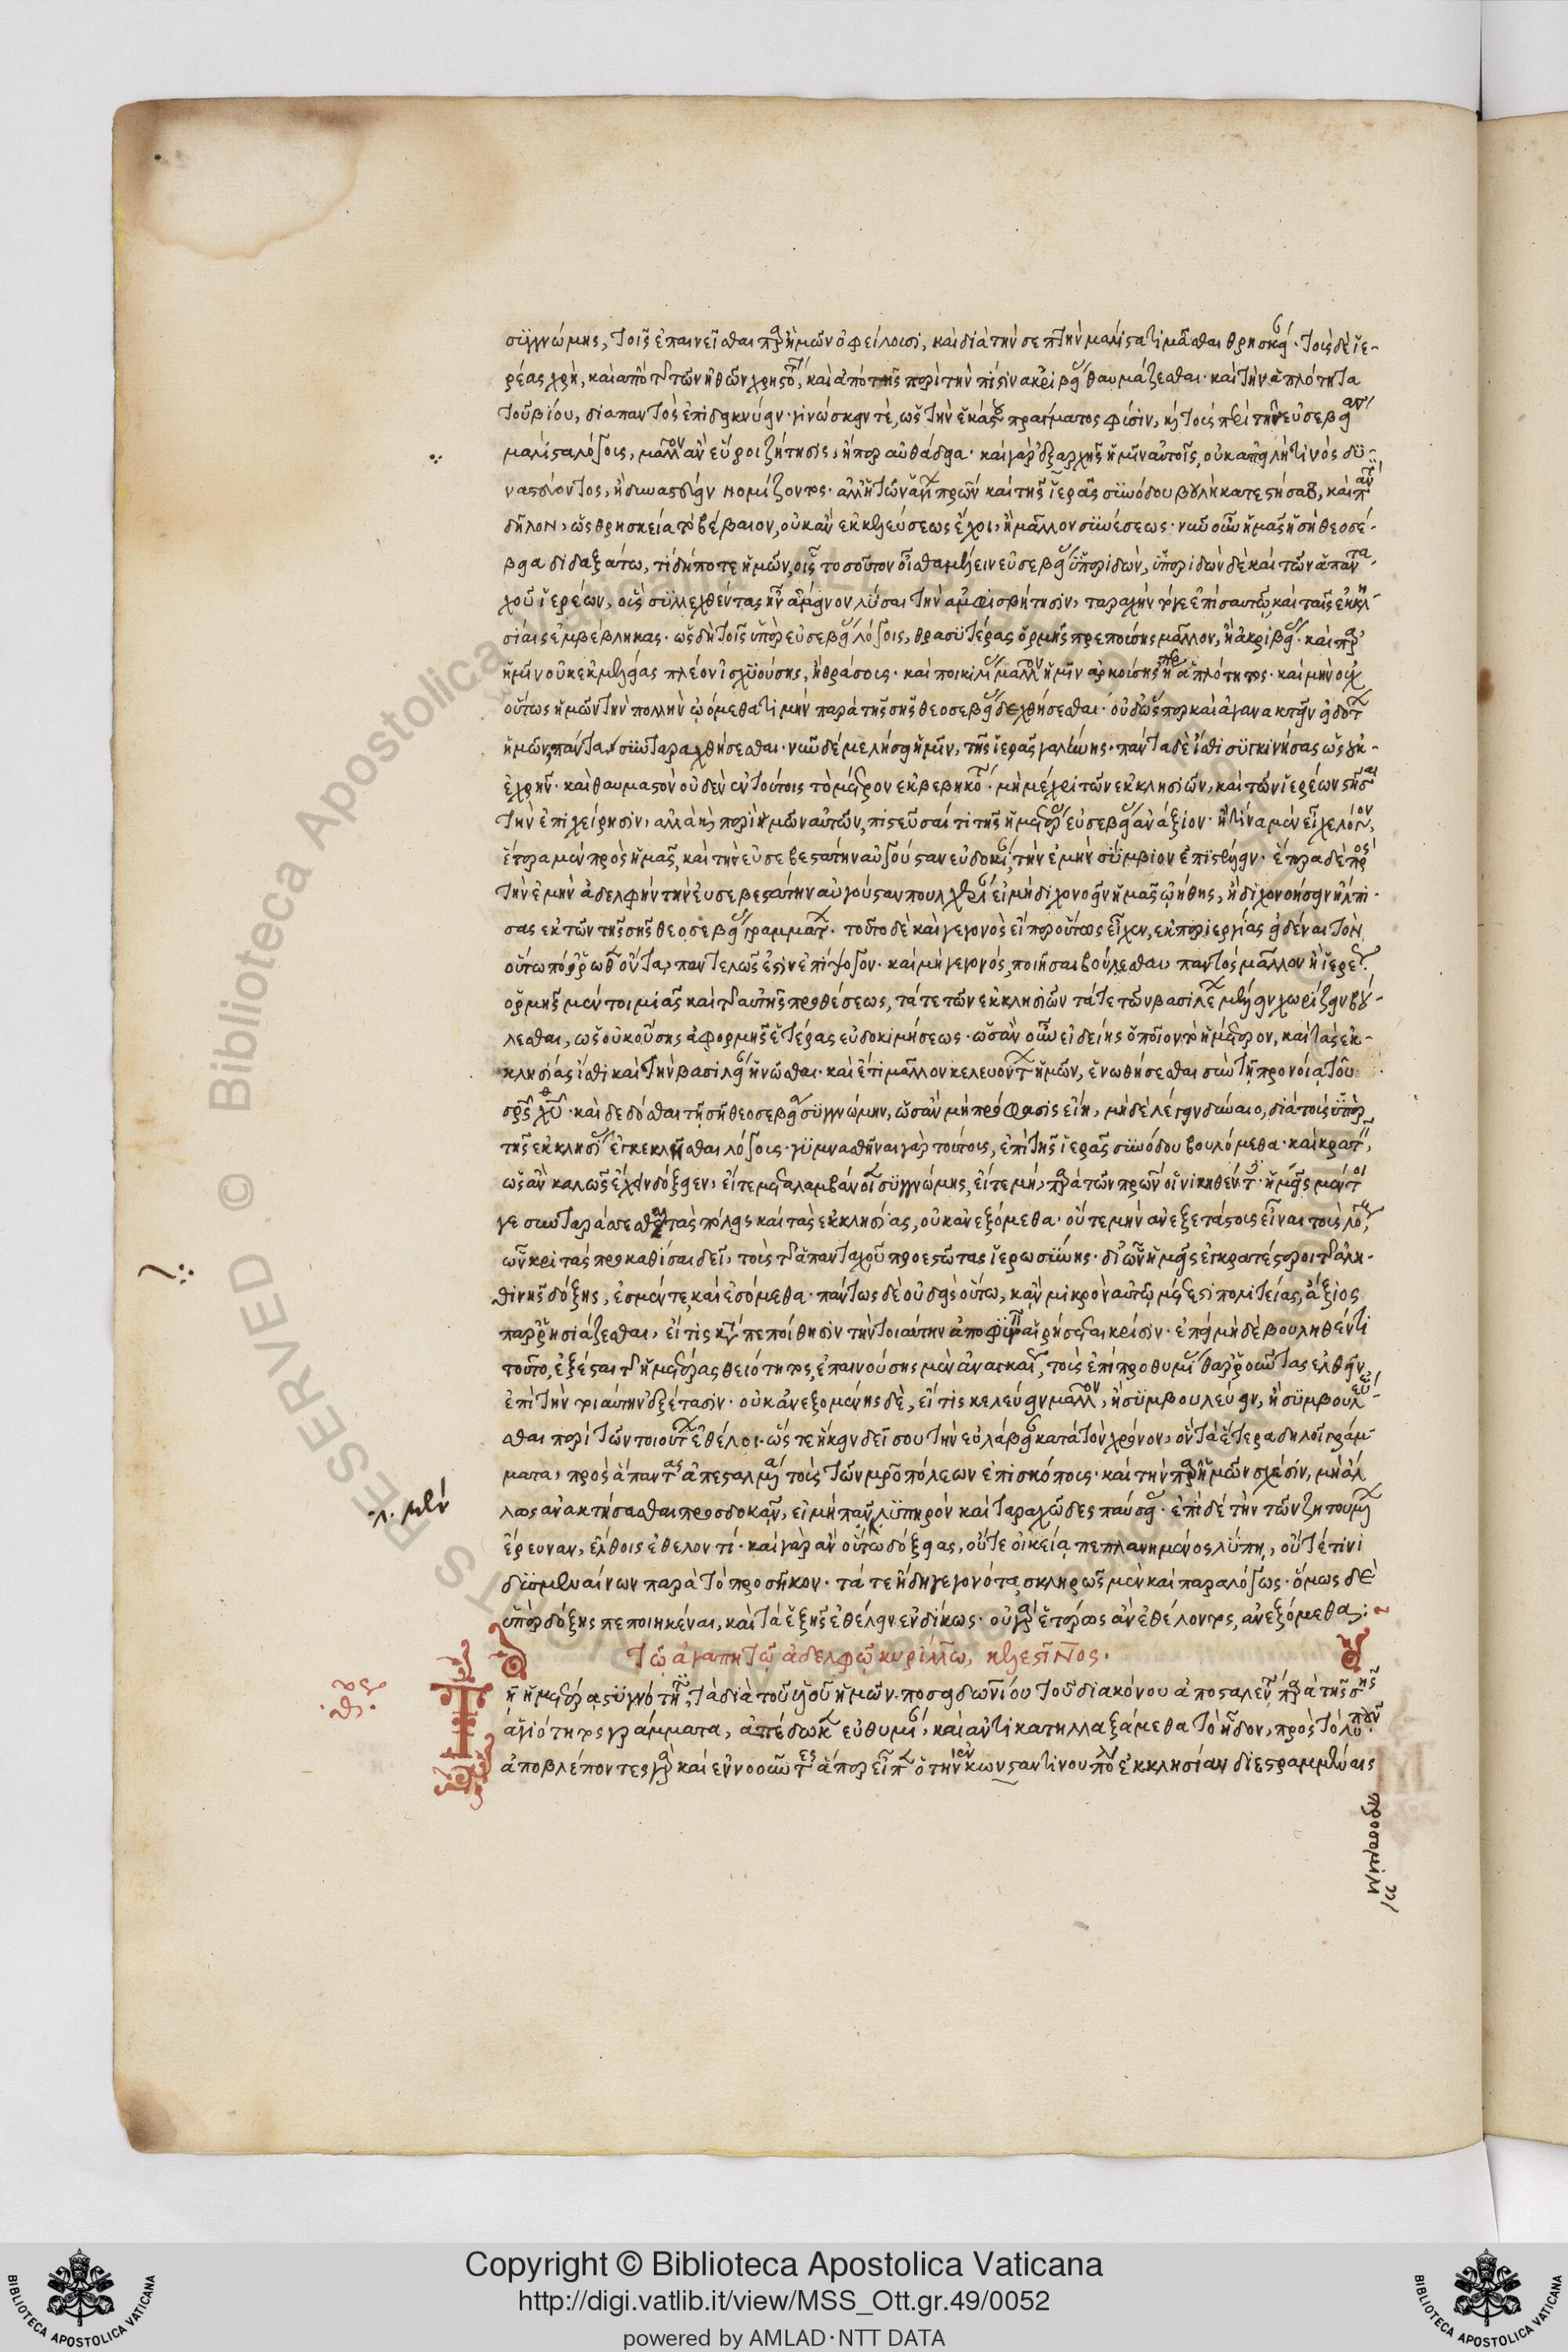 συγγνώμης, τοῖς ἐπαινεῖσθαι παρ' ἡμῶν ὀφείλουσι, καὶ διὰ τὴν σεπτὴν μάλιστα τιμᾶσθαι θρησκείαν. τοὺς δὲ ἱε-
ρέας χρὴ, καὶ ἀπὸ τῆς τῶν ἠθῶν χρηστότητος, καὶ ἀπὸ τῆς περὶ τὴν πίστιν ἀκριβείας θαυμάζεσθαι· καὶ τὴν ἁπλότητα
τοῦ βίου, διαπαντὸς ἐπιδεικνύειν· γινώσκειν τὲ, ὡς τὴν ἑκάστου πράγματος φύσιν, καὶ τοῖς περὶ τὴν εὐσέβειαν
μάλιστα λόγοις, μᾶλλον ἂν εὕροι ζήτησις, ἤπερ αὐθάδεια· καὶ γὰρ ἐξαρχῆς ἡμῖν αὐτοῖς, οὐκ ἀπειλή τινὸς δυ-
δῆλον, ὡς θρησκεία τὸ βέβαιον, οὐκ ἂν ἐκ κελεύσεως ἔχοι, ἢ μᾶλλον συνέσεως· νῦν οὖν ἡμᾶς ἡ σὴ θεοσέ-
βεια διδαξάτω, τί δήποτε ἡμῶν, οἷς τοσοῦτον οἶσθα μέλειν εὐσεβείας ὑπεριδὼν, ὑπεριδὼν δὲ καὶ τῶν ἁπαντα-
χοῦ ἱερέων, οὓς συνελθέντας ἦν ἄμεινον λῦσαι τὴν ἀμφισβήτησιν, ταραχὴν τόγε ἐπὶ σαυτῷ καὶ ταῖς ἐκκλη-
σίαις ἐμβέβληκας· ὡς δὴ τοῖς ὑπὲρ εὐσεβείας λόγοις, θρασυτέρας ὁρμῆς πρεπούσης μᾶλλον, ἢ ἀκριβείας· καὶ παρ'
ἡμῖν οὐκ ἐκμελείας πλέον ἰσχυούσης, ἢ θράσους· καὶ ποικιλίας μᾶλλον ἡμῖν ἀρκούσης ἤπερ ἁπλότητος· καὶ μὴν οὐχ
οὕτως ἡμῶν τὴν πολλὴν ᾠόμεθα τιμὴν παρὰ τῆς σῆς θεοσεβείας δεχθήσεσθαι· οὐδ' ὥσπερ καὶ ἀγανακτεῖν εἰδότων
ἡμῶν, πάντα συνταραχθήσεσθαι· νῦν δὲ μελήσει ἡμῖν, τῆς ἱερᾶς γαλήνης· πάντα δὲ ἴσθι συγκινήσας ὡς οὐκ
ἐχρῆν· καὶ θαυμαστὸν οὐδὲν ἐν τούτοις τὸ μέτρον ἐκβεβηκότα· μὴ μέχρι τῶν ἐκκλησιῶν, καὶ τῶν ἱερέων στῆσαι
τὴν ἐπιχείρησιν, ἀλλὰ καὶ περὶ ἡμῶν αὐτῶν, πιστεῦσαί τι τῆς ἡμετέρας εὐσεβείας ἀνάξιον· ἢ τίνα μὲν εἶχε λόγον,
ἕτερα μὲν πρὸς ἡμᾶς, καὶ τὴν εὐσεβεστάτην αὐγούσταν εὐδοκίαν, τὴν ἐμὴν σύμβιον ἐπιστέλλειν· ἕτερα δὲ πρὸς
τὴν ἐμὴν ἀδελφὴν τὴν εὐσεβεστάτην αὐγούσταν πουλχερίαν εἰ μὴ διχονοεῖν ἡμᾶς ᾠήθης, ἢ διχονοήσειν ἤλπι-
σας ἐκ τῶν τῆς σῆς θεοσεβείας γραμμάτων· τοῦτο δὲ καὶ γεγονὸς εἴπερ οὕτως εἶχεν, ἐκ περιεργίας εἰδέναι τὸν
οὕτω πόρρωθεν ὄντα, παντελῶς ἐστὶν ἐπίψογον· καὶ μὴ γεγονὸς, ποιῆσαι βούλεσθαι, παντὸς μᾶλλον ἢ ἱερέως
ὁρμῆς μέντοι μιᾶς καὶ τῆς αὐτῆς προθέσεως, τά τε τῶν ἐκκλησιῶν τά τε τῶν βασιλέων μέλλειν χωρίζειν βού-
λεσθαι, ὡς οὐκ οὔσης ἀφορμῆς ἑτέρας εὐδοκιμήσεως· ὡς ἂν οὖν εἰδείης ὁποῖον τὸ ἡμέτερον, καὶ τὰς ἐκ-
κλησίας ἴσθι καὶ τὴν βασιλείαν ἡνῶσθαι· καὶ ἔτι μᾶλλον κελευόντων ἡμῶν, ἑνωθήσεσθαι σὺν τῇ προνοίᾳ τοῦ
σρς χυ· καὶ δεδόσθαι τῇ σῇ θεοσεβείᾳ συγγνώμην, ὡς ἂν μὴ πρόφασις εἴη, μηδὲ λέγειν δύναιο, διὰ τοὺς ὑπὲρ
τῆς ἐκκλησίας ἐγκεκλῆσθαι λόγους· γυμνασθῆναι γὰρ τούτους, ἐπὶ τῆς ἱερᾶς συνόδου βουλόμεθα· καὶ κρατεῖν
ὡς ἂν καλῶς ἔχειν δόξειεν, εἴτε μεταλαμβάνοιεν συγγνώμης, εἴτε μὴ, παρὰ τῶν πρων οἱ νικηθέντες· ἡμεῖς μέντοι
γε συνταράσσεσθαι τὰς πόλεις καὶ τὰς ἐκκλησίας, οὐκ ἀνεξόμεθα· οὔτε μὴν ἀνεξετάστους εἶναι τοὺς λόγους,
ὧν κριτὰς προκαθίσαι δεῖ, τοὺς τῆς ἁπανταχοῦ προεστῶτας ἱερωσύνης· δι' ὧν ἡμεῖς ἐγκρατέστεροι τῆς ἀλη-
θινῆς δόξης, ἐσμέν τε, καὶ ἐσόμεθα· πάντως δὲ οὐδεὶς οὕτω, κἂν μικρὸν αὐτῷ μέτεστι πολιτείας, ἄξιος
παρρησιάζεσθαι, εἴ τις κατὰ πεποίθησιν τὴν τοιαύτην ἀποφύγῃ αἱρήσεται κρίσιν· ἐπεὶ μηδὲ βουληθέντι
τοῦτο, ἐξέσται τῆς ἡμετέρας θειότητος, ἐπαινούσης μὲν ἀναγκαίως, τοὺς ἐπὶ προθυμίᾳ θαρροῦντας ἐλθεῖν
ἐπὶ τὴν τοιαύτην ἐξέτασιν· οὐκ ἀνεξομένης δὲ, εἴ τις κελεύειν μᾶλλον, ἢ συμβουλεύειν, ἢ συμβουλεύε-
σθαι περὶ τῶν τοιούτων ἐθέλοι· ὥστε ἥκειν δεῖ σου τὴν εὐλάβειαν κατὰ τὸν χρόνον, ὃν τὰ ἕτερα δηλοῖ γράμ-
ματα, πρὸς ἅπαντας ἀπεσταλμένα τοὺς τῶν μροπόλεων ἐπισκόπους· καὶ τὴν παρ' ἡμῶν σχέσιν, μὴ ἄλ-
λως ἀνακτήσασθαι προσδοκᾶν, εἰ μὴ πᾶν λυπηρὸν καὶ ταραχῶδες παύσεις· ἐπὶ δὲ τὴν τῶν ζητουμένων
ἔρευναν, ἔλθοις ἐθελοντί· καὶ γὰρ ἂν οὕτω δόξειας, οὔτε οἰκείᾳ πεπλανημένος λύπῃ, οὔτέ τινι
δυσμεναίνων παρὰ τὸ προσῆκον· τά τε ἤδη γεγονότα, σκληρῶς μὲν καὶ παραλόγως· ὅμως δὲ
ὑπὲρ δόξης πεποιηκέναι, καὶ τὰ ἑξῆς ἐθέλειν ἐνδίκως· οὐ γὰρ ἑτέρως ἂν ἐθέλοντος, ἀνεξόμεθα:
Τῷ ἀγαπητῷ ἀδελφῷ κυρίλλῳ, κελεστῖνος.
Τῇ ἡμετέρᾳ ἁγιότητι, τὰ διὰ τοῦ υἱοῦ ἡμῶν ποσειδωνίου τοῦ διακόνου ἀποσταλέντα παρὰ τῆς σῆς
ἁγιότητος γράμματα, ἀπέδωκεν εὐθυμίαν, καὶ ἀντικατηλλαξάμεθα τὸ ἥδον, πρὸς τὸ λυποῦν·
ἀποβλέποντες γὰρ καὶ ἐννοοῦντες ἅπερ εἶπεν ὁ τὴν κωνσταντινουπόλεως ἐκκλησίαν διεστραμμέναις